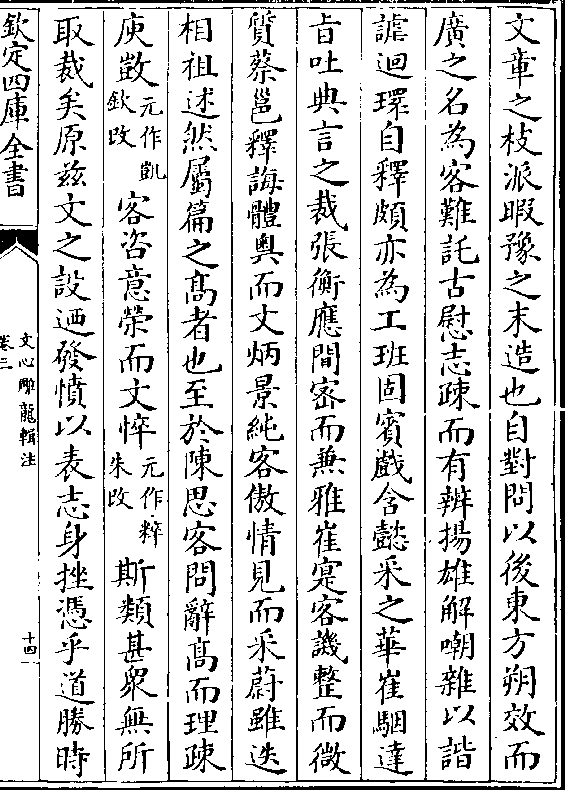 文章之枝派暇豫之末造也自對問以後東方朔效而
廣之名為客難託古慰志疎而有辨揚雄解嘲雜以諧
謔迴環自釋頗亦為工班固賓戲含懿采之華崔駰達
旨吐典言之裁張衡應間宻而兼雅崔寔客譏整而微
質蔡邕釋誨體奥而文炳景純客傲情見而采蔚雖迭
相祖述然屬篇之髙者也至於陳思客問辭髙而理疎
庾敳元作凱欽改客咨意榮而文悴元作粹朱改斯類甚衆無所
取裁矣原兹文之設迺發憤以表志身挫憑乎道勝時
欽定四庫全書
文心雕龍輯注
卷三
十四